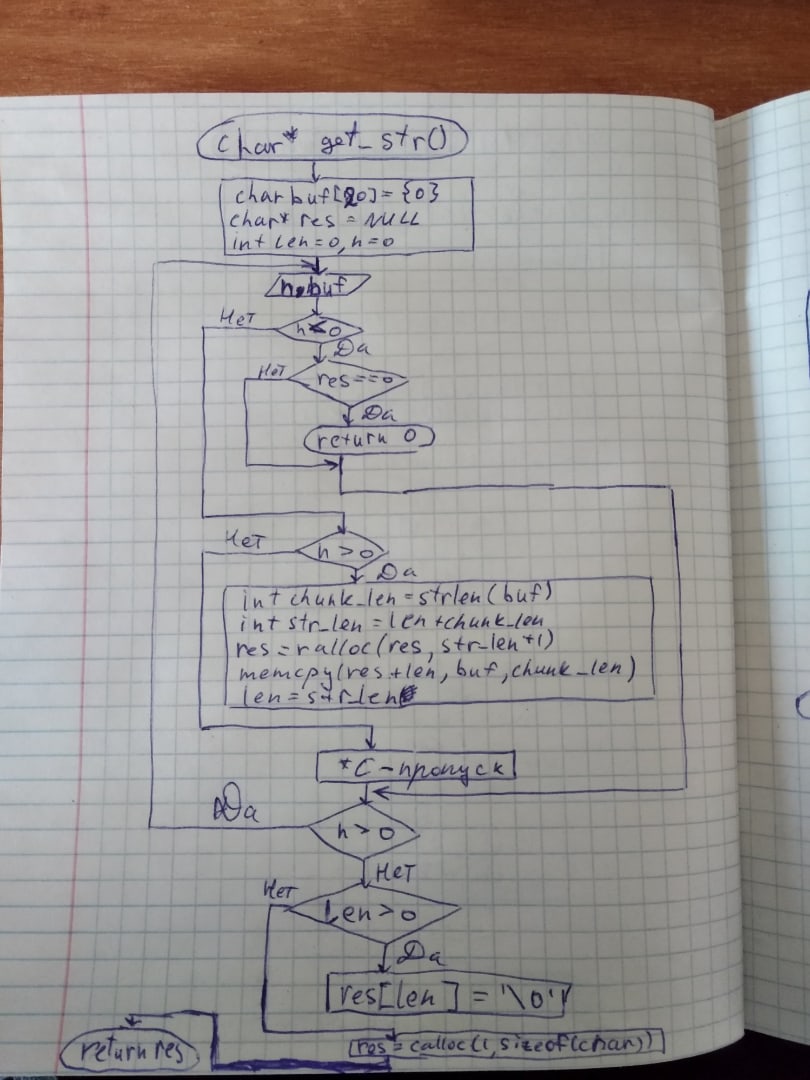 char* get_str()
char buf[20] = {0}
char* res = NULL
int len=0, n=0
n, buf
Нет
n<0
Да
Нет
res==0
Да
return 0
Нет
n>0
Да
int chunk_len=strlen(buf)
int str_len=len+chunk_len
res=ralloc(res, str_len+1)
memcpy(res+len, buf, chunk_len)
len=str_len
*C-пропуск
Да
n>0
Нет
Нет
Len>0
Да
res[len] = '\0'
res = calloc(1, sizeof(char))
return res